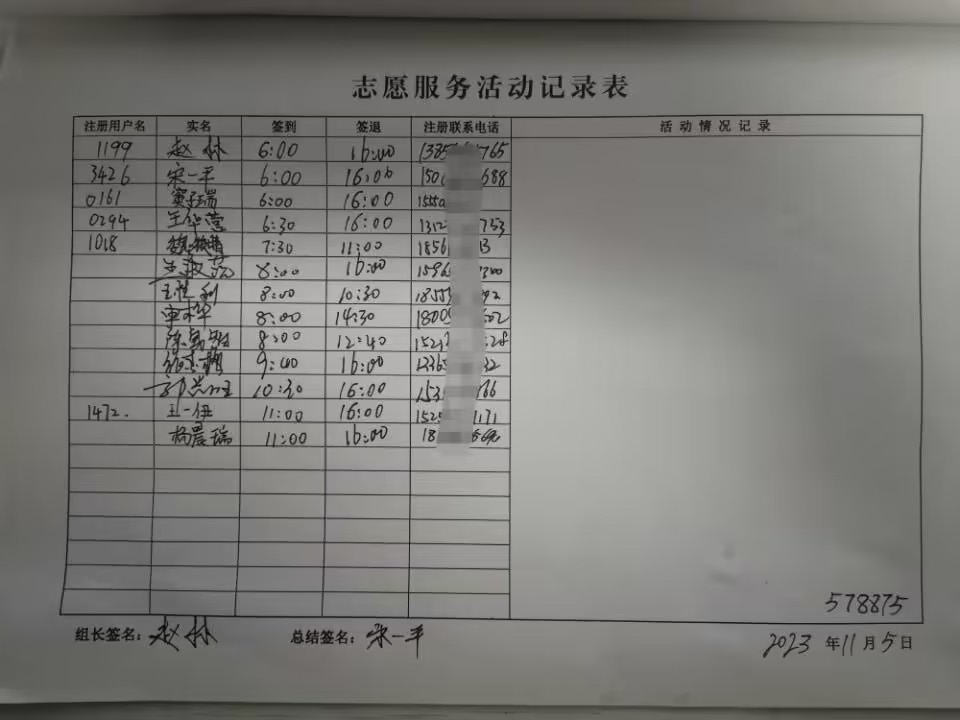 志愿服务活动记录表
注册用户名 实名 签到 签退 注册联系电话 活动情况记录
1199 赵林 6:00 16:00 1385 765
3426 宋一平 6:00 16:00 150 688
0161 6:00 16:00 1555
0294 王华营 6:30 16:00 1312 753
1018 7:30 11:00 1856 13
8:00 16:00 1596 300
王胜利 8:00 10:30 1855 92
申桦 8:00 14:30 1800 502
陈 8:00 12:40 152 28
9:40 16:00 1336 32
10:30 16:00 153 766
1472. 王一伊 11:00 16:00 152 1171
杨晨瑞 11:00 16:00 18
578875
组长签名：赵林 总结签名：宋一平 2023年11月5日